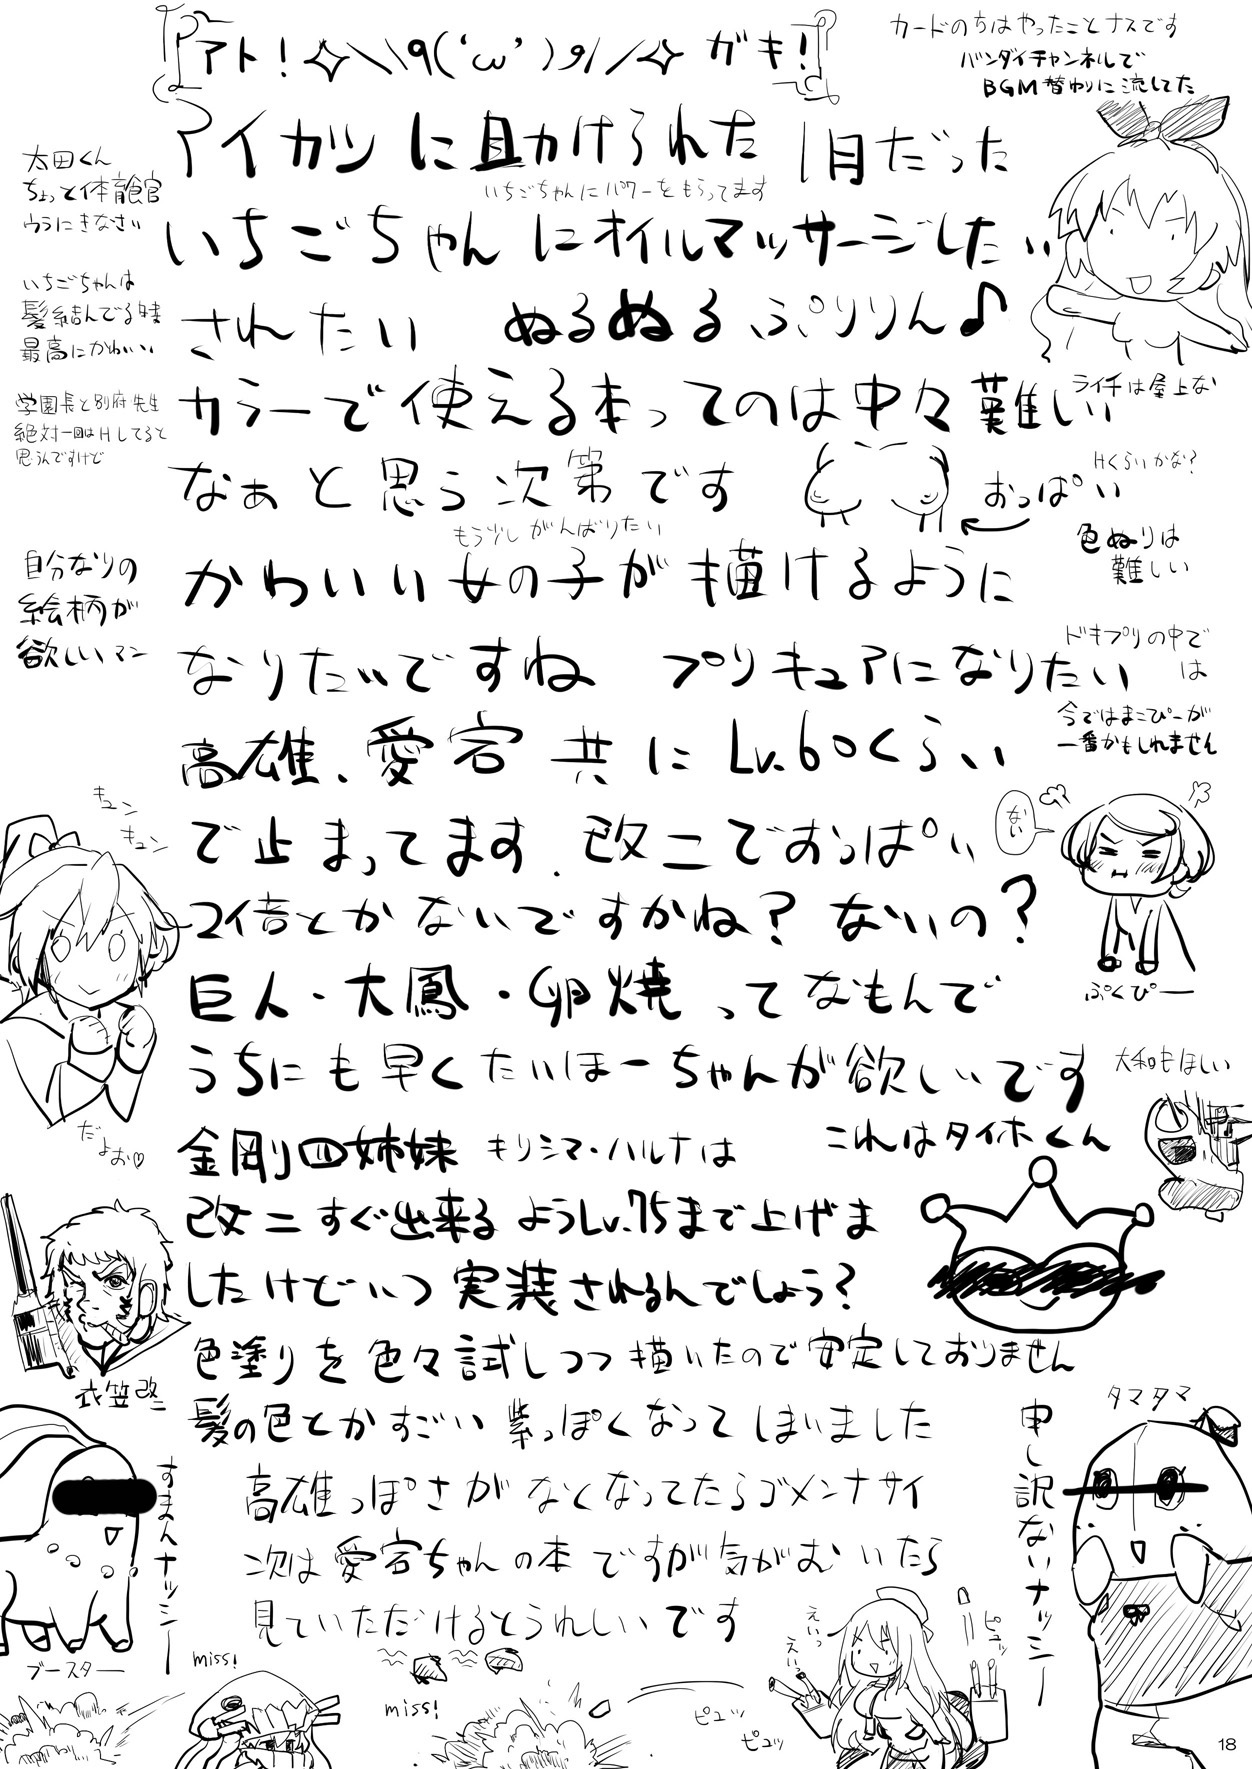 アト！✧＼٩('ω')و／✧ガキ！
カードのちはやったことナスです
バンダイチャンネルで
BGM替わりに流してた
アイカツに助けられた1月だった
いちごちゃんにパワーをもらってます
太田くん
ちょっと体育館
ウラにきなさい
いちごちゃんにオイルマッサージしたい
いちごちゃんは
髪結んでる時
最高にかわいい
されたい ぬるぬるぷりりん♪
学園長と別府先生
絶対一回はHしてると
思うんですけど
カラーで使える本ってのは中々難しい
ライチは屋上な
なぁと思う次第です
おっぱい
Hくらいかな?
もう少しがんばりたい
色ぬりは
難しい
かわいい女の子が描けるように
自分なりの
絵柄が
欲しいマン
なりたいですね プリキュアになりたい
ドキプリの中で
は
今ではまこぴーが
一番かもしれません
高雄、愛宕共にLv.60くらい
で止まってます. 改二でおっぱい
ない
2倍とかないですかね? ないの?
ぷくぴー
キュン
キュン
だよお♡
巨人・大鳳・卵焼ってなもんで
うちにも早くたいほーちゃんが欲しいです
大和もほしい
金剛四姉妹 キリシマ・ハルナは
これはタイホくん
改二すぐ出来るようLv.75まで上げま
したけどいつ実装されるんでしょう?
衣笠改二
色塗りを色々試しつつ描いたので安定しておりません
髪の色とかすごい紫っぽくなってしまいました
高雄っぽさがなくなってたらゴメンナサイ
次は愛宕ちゃんの本ですが気がむいたら
見ていただけるとうれしいです
タマタマ
申し訳ないナッシー
すまんナッシー
ブースター
miss!
miss!
えいっ
えいっ
ピュッ
ピュッ
ピュッ
18